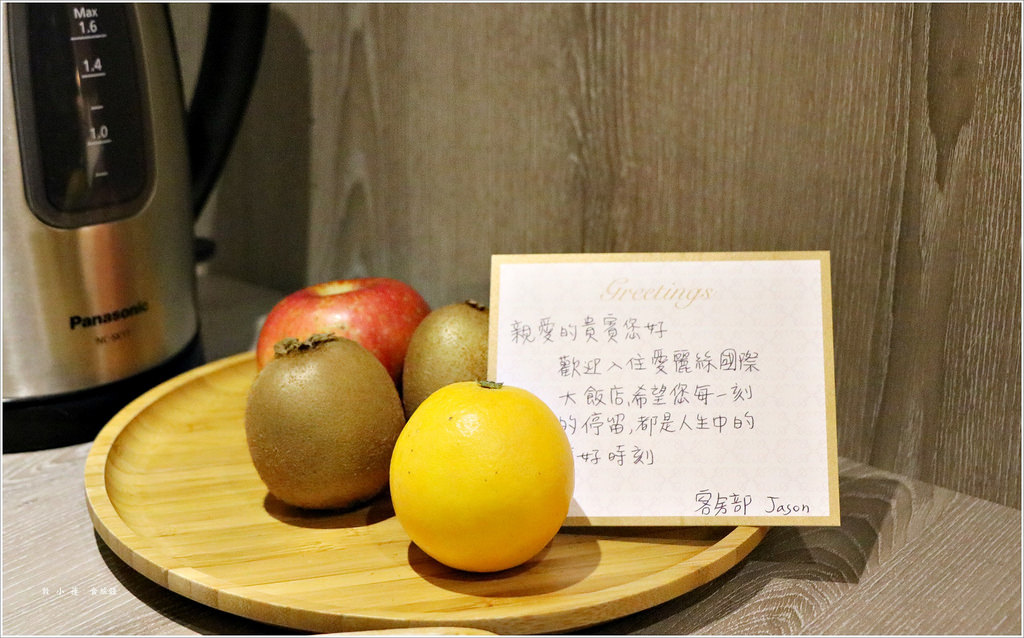 Max
1.6
1.4
1.0
Panasonic
Greetings
親愛的貴賓您好
歡迎入住愛麗絲國際
大飯店,希望您每一刻
的停留,都是人生中的
好時刻
客房部 Jason